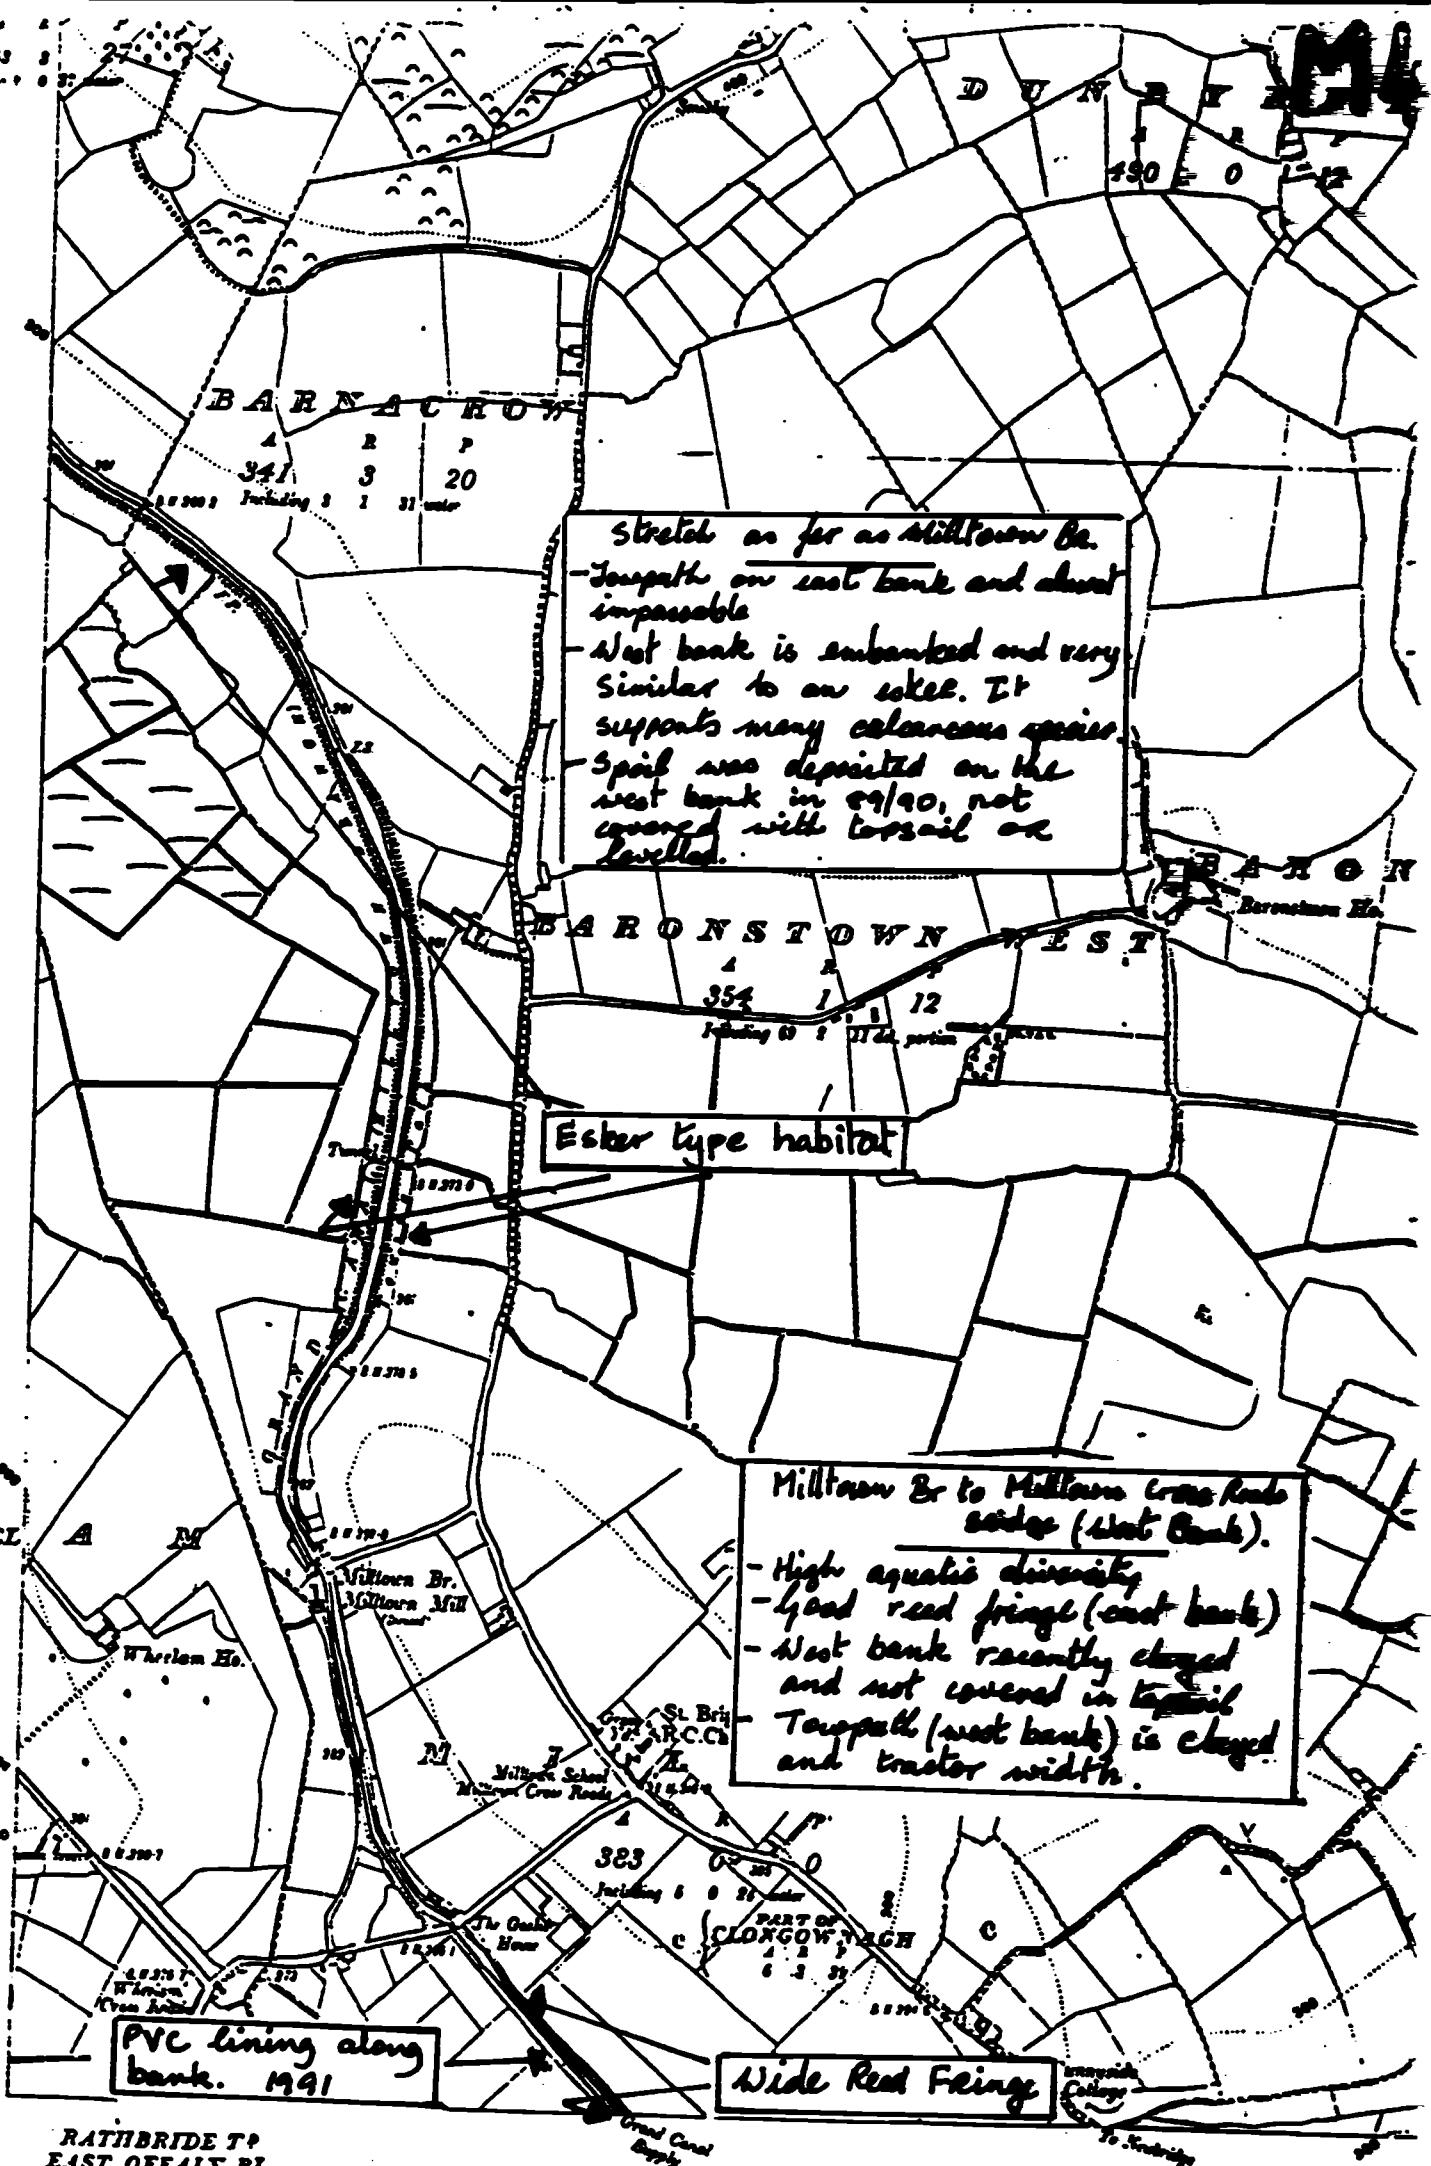 M4
D U N B Y
A R P
490 0 12
Smithy
B A R N A C R O W
A R P
341 3 20
Including 3 1 31 water
Stretch as far as Milltown Br.
- Towpath on east bank and almost
impassable
- West bank is embanked and very
similar to an esker. It
supports many calcareous species.
- Spoil was deposited on the
west bank in 89/90, not
covered with topsoil or
levelled.
B A R O N
Baronstown Ho.
B A R O N S T O W N W E S T
A R P
354 1 12
Including 69 2 11 det. portion
Esker type habitat
G R A N D
Milltown Br to Milltown Cross Roads
bridge (West Bank).
- High aquatic diversity
- Good reed fringe (east bank)
- West bank recently clayed
and not covered in topsoil
- Towpath (west bank) is clayed
and tractor width.
A M
Milltown Br.
Milltown Mill
Wheelam Ho.
St. Brig
R.C.Ch
M I L
Milltown School
Milltown Cross Roads
A R P
383 0 0
Including 5 0 26 water
PART OF
CLONGOWNAGH
A R P
6 3
C
The
House
Cross Roads
PVC lining along
bank. 1991
Wide Reed Fringe
Sunnyside
Cottage
Grand Canal
Supply
To Newbridge
RATHBRIDE TP
EAST OFFALY